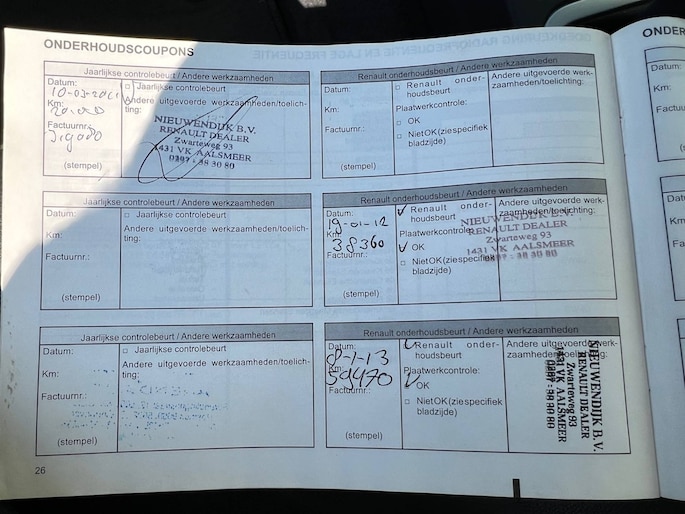 ONDERHOUDSCOUPONS
ONDER
Jaarlijkse controlebeurt / Andere werkzaamheden
Datum:
10-03-201
□ Jaarlijkse controlebeurt
Km:
20.000
Andere uitgevoerde werkzaamheden/toelich-
ting:
Factuurnr.:
(stempel)
NIEUWENDIJK B.V.
RENAULT DEALER
Zwarteweg 93
1431 VK AALSMEER
0297 - 38 30 80
Renault onderhoudsbeurt / Andere werkzaamheden
Datum:
Km:
Factuurnr.:
(stempel)
□ Renault onder-
houdsbeurt
Plaatwerkcontrole:
□ OK
□ NietOK(ziespecifiek
bladzijde)
Andere uitgevoerde werk-
zaamheden/toelichting:
Jaarlijkse controlebeurt / Andere werkzaamheden
Datum:
Km:
Factuurnr.:
(stempel)
□ Jaarlijkse controlebeurt
Andere uitgevoerde werkzaamheden/toelich-
ting:
Renault onderhoudsbeurt / Andere werkzaamheden
Datum:
19-01-12
Km:
38360
Factuurnr.:
(stempel)
✓ Renault onder-
houdsbeurt
Plaatwerkcontrole:
✓ OK
□ NietOK(ziespecifiek
bladzijde)
Andere uitgevoerde werk-
zaamheden/toelichting:
NIEUWENDIJK B.V.
RENAULT DEALER
Zwarteweg 93
1431 VK AALSMEER
0297 - 38 30 80
Jaarlijkse controlebeurt / Andere werkzaamheden
Datum:
Km:
Factuurnr.:
(stempel)
□ Jaarlijkse controlebeurt
Andere uitgevoerde werkzaamheden/toelich-
ting:
Renault onderhoudsbeurt / Andere werkzaamheden
Datum:
8-1-13
Km:
59470
Factuurnr.:
(stempel)
✓ Renault onder-
houdsbeurt
Plaatwerkcontrole:
✓ OK
□ NietOK(ziespecifiek
bladzijde)
Andere uitgevoerde werk-
zaamheden/toelichting:
NIEUWENDIJK B.V.
RENAULT DEALER
Zwarteweg 93
1431 VK AALSMEER
0297 - 38 30 80
26